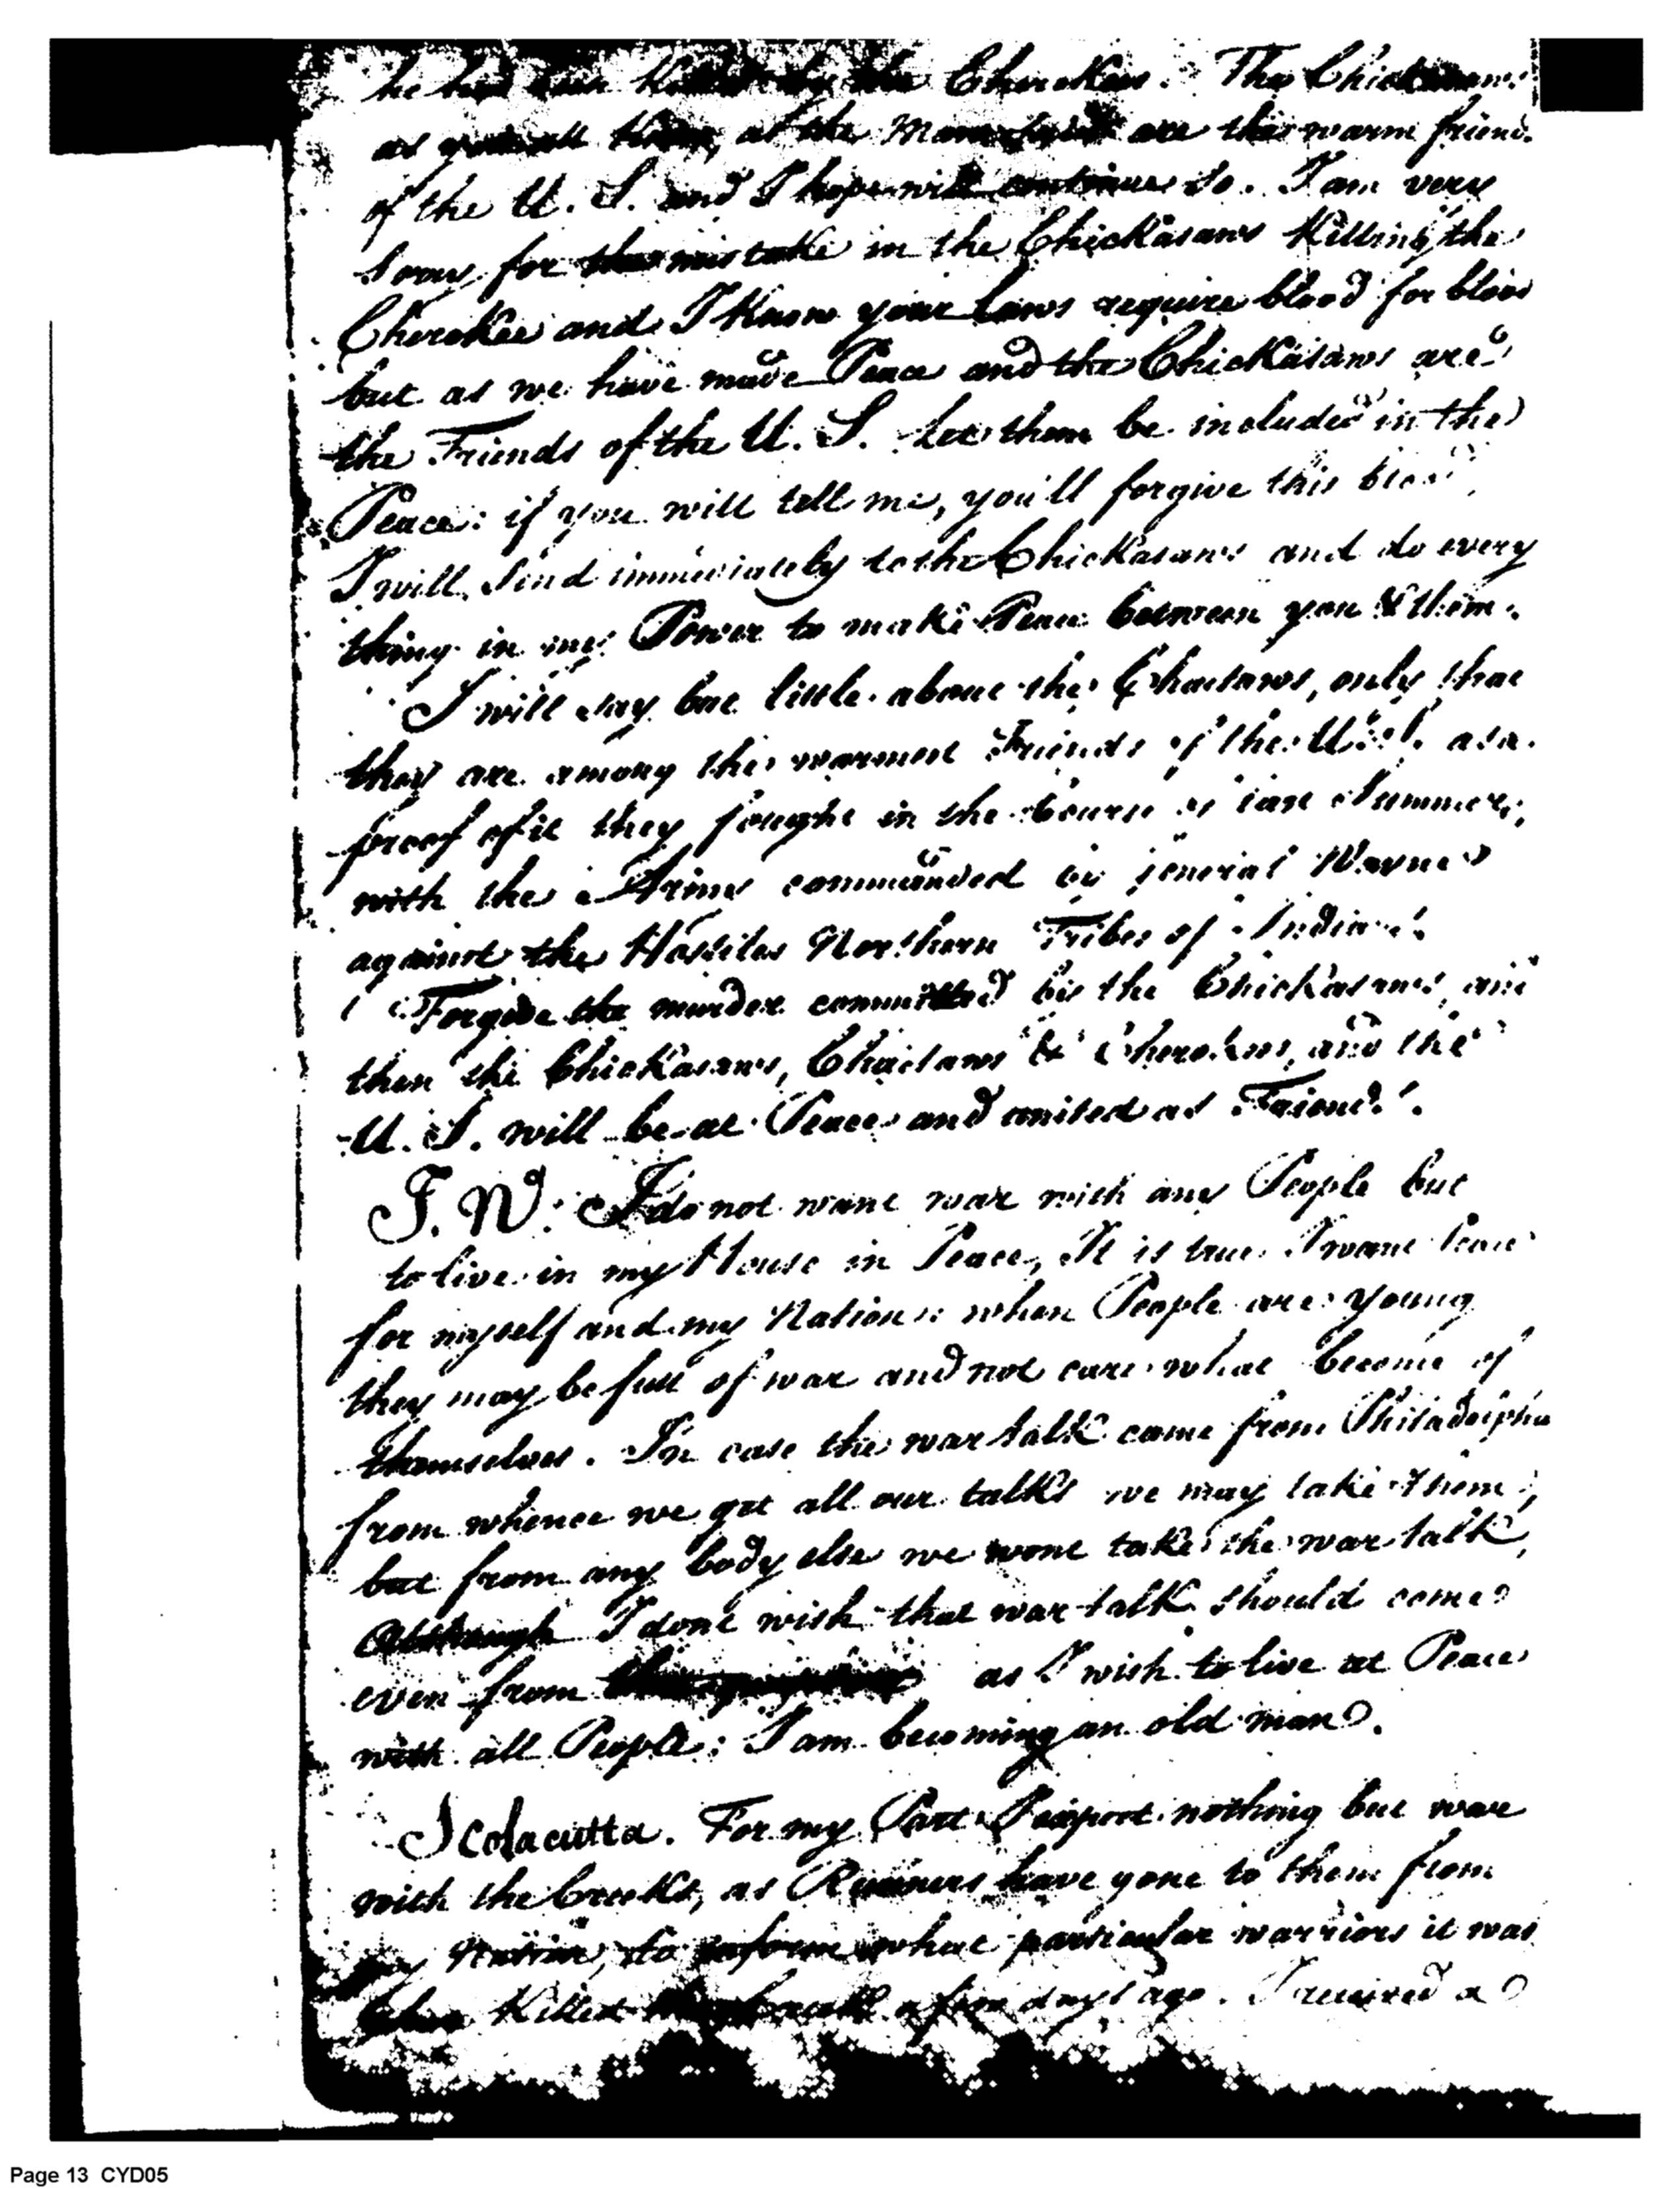 he had been killed by the Cherokees. The Chickasaws
as you call them, at the are the warm friends
of the U. S. and I hope will continue so. I am very
sorry for the mistake in the Chickasaws Killing the
Cherokee and I Know your laws require blood for blood
but as we have made Peace and the Chickasaws are
the Friends of the U. S. let them be included in the
Peace: if you will tell me, you'll forgive this blood,
I will send immediately to the Chickasaws and do every
thing in my Power to make Peace between you & them.
I will say but little about the Chactaws, only that
they are among the warmest Friends of the U. S. as a
proof of it they fought in the Course of last Summer,
with the Army commanded by General Wayne
against the Hostiles Northern Tribes of Indians.
Forgive the murder committed by the Chickasaws, and
then the Chickasaws, Chactaws & Cherokees, and the
U. S. will be at Peace and united as Friends.
J. W: I do not want war with any People but
to live in my House in Peace, It is true I want Peace
for myself and my Nation: when People are young
they may be full of war and not care what become of
themselves. In case the war talk came from Philadelphia
from whence we get all our talks we may take them;
but from any body else we wont take the war talk,
Although I dont wish that war talk should come
even from as I wish to live at Peace
with all People: I am becoming an old man.
Scolacutta. For my Part I expect nothing but war
with the Creeks, as Runners have gone to them from
my Nation, to inform what particular warriors it was
who Killed a few days ago. I received a